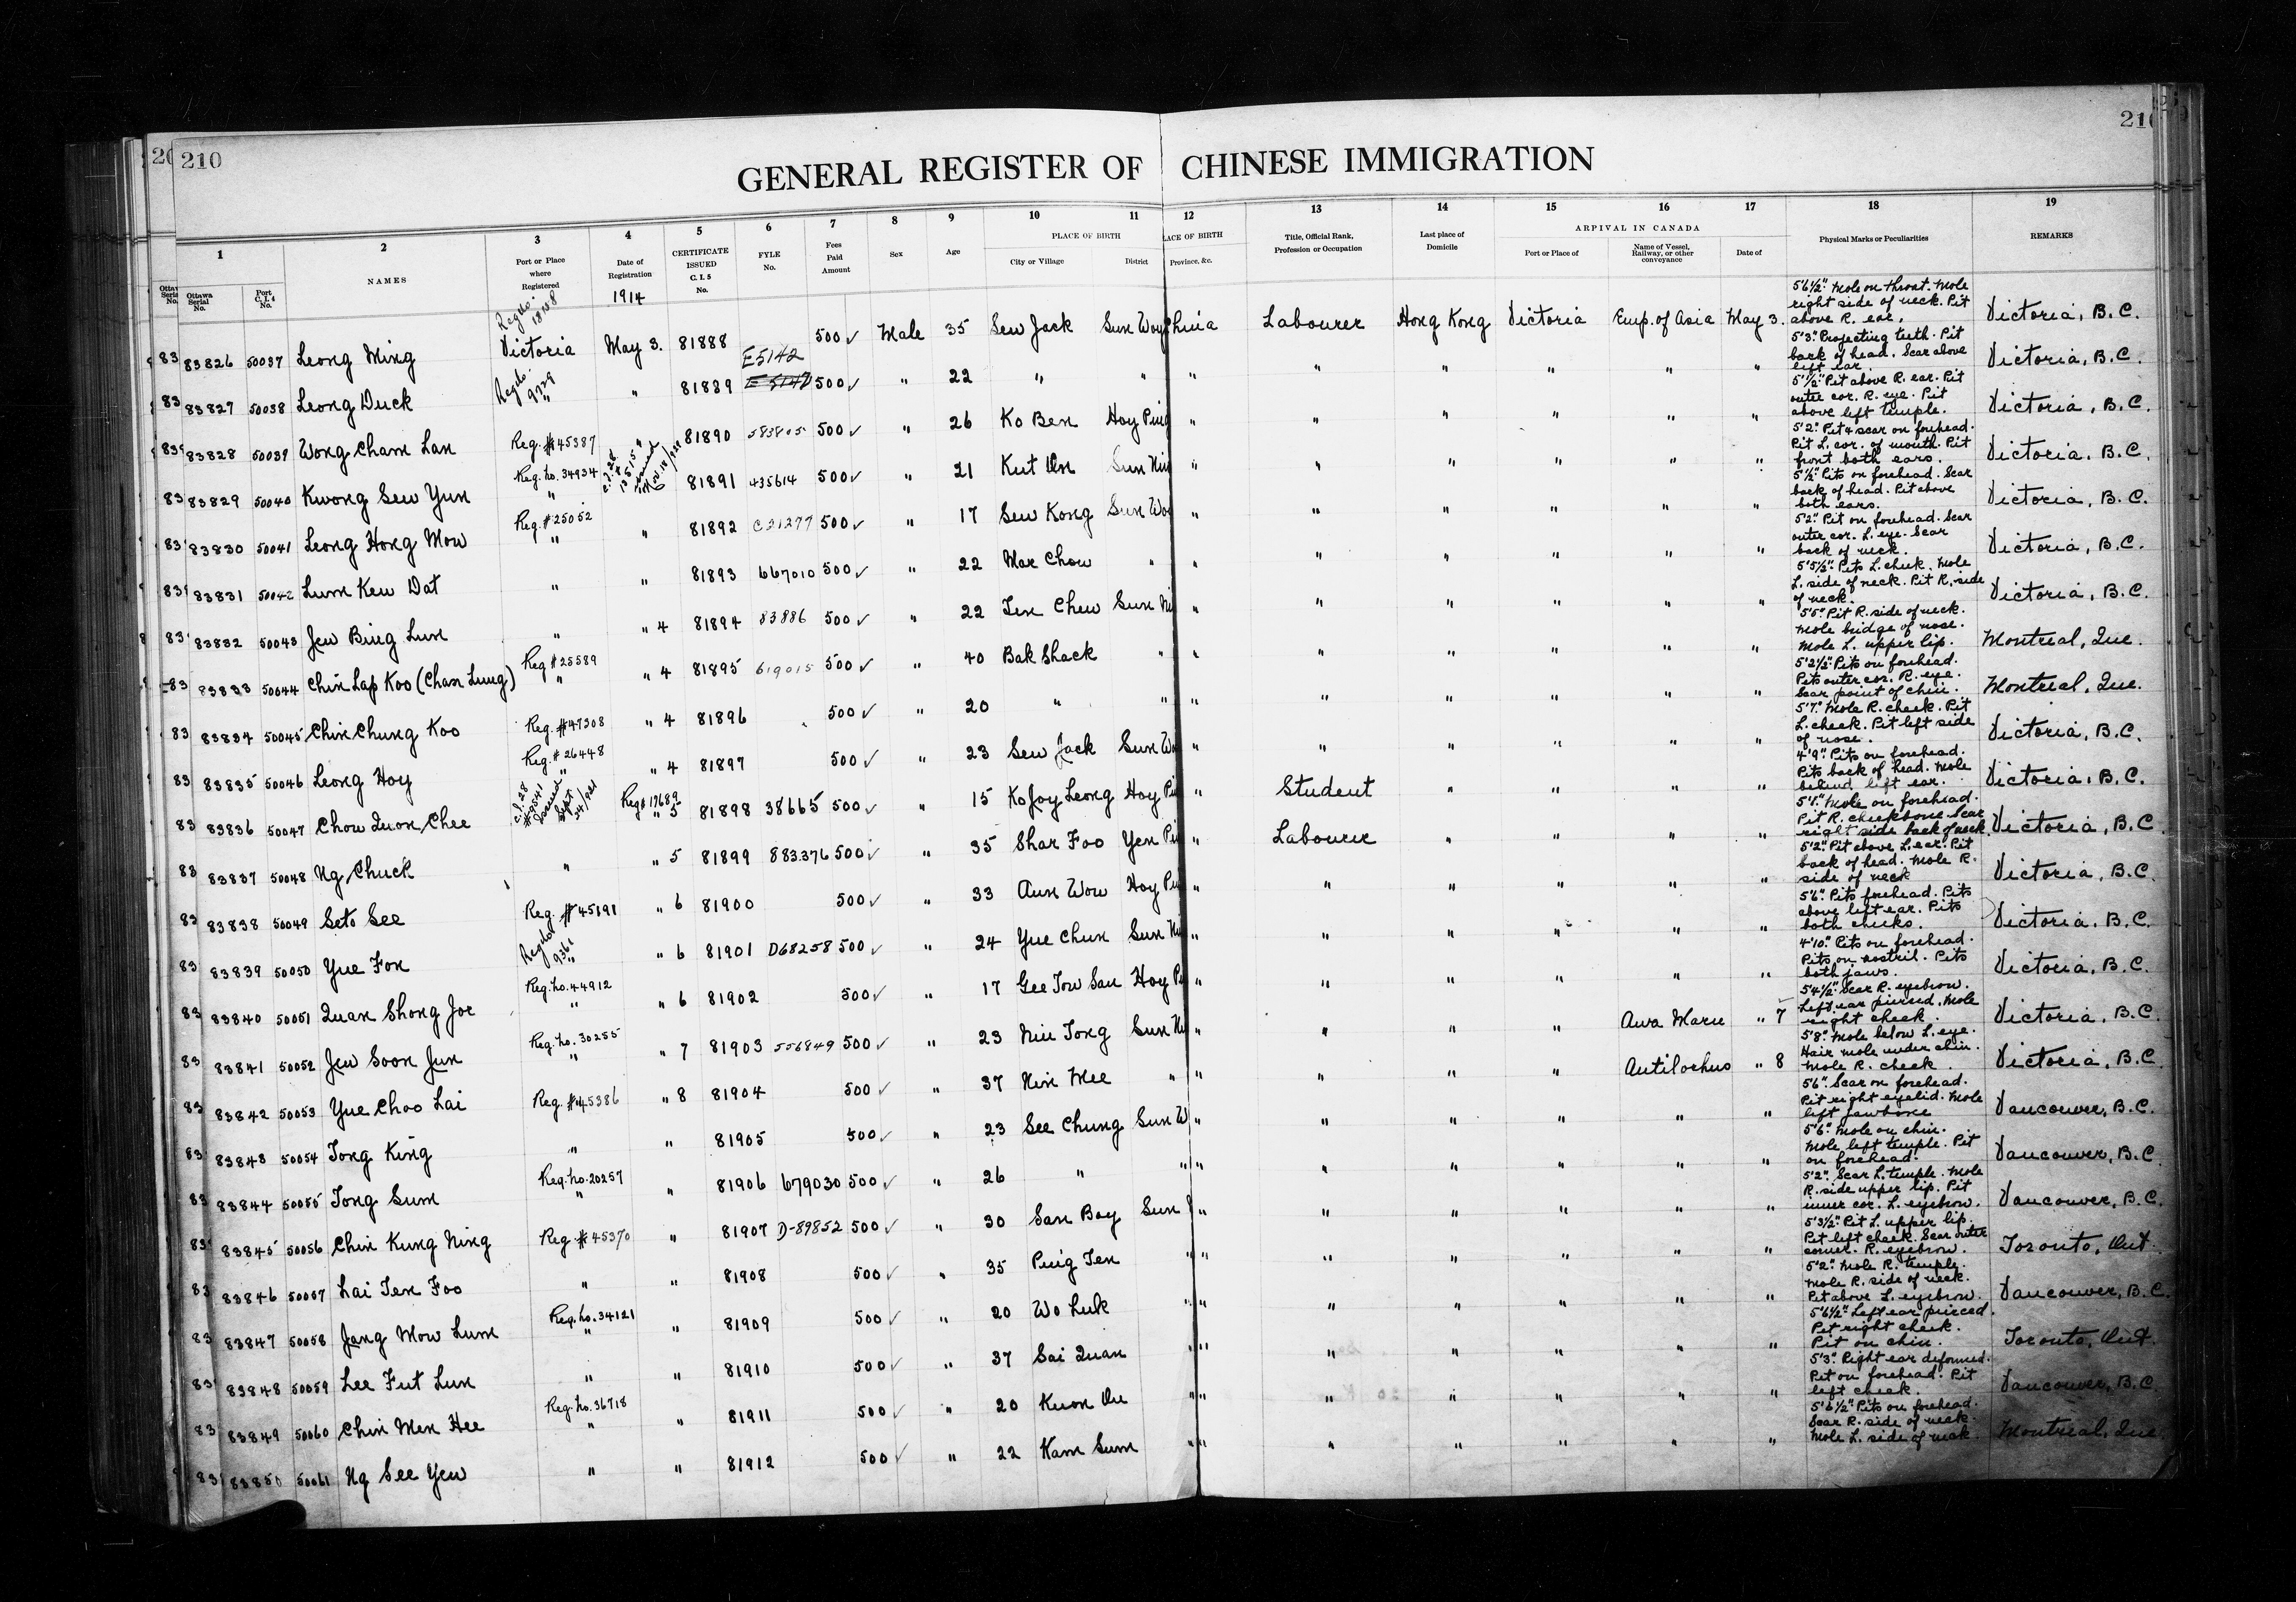 210
GENERAL REGISTER OF CHINESE IMMIGRATION
1 2 3 4 5 6 7 8 9 10 11 12 13 14 15 16 17 18 19
Ottawa Serial No. Port C.I.4 No. NAMES Port or Place where Registered Date of Registration CERTIFICATE ISSUED C.I.5 No. FYLE No. Fees Paid Amount Sex Age PLACE OF BIRTH City or Village District Province, &c. Title, Official Rank, Profession or Occupation Last place of Domicile ARRIVAL IN CANADA Port or Place of Name of Vessel, Railway, or other conveyance Date of Physical Marks or Peculiarities REMARKS
1914
83826 50037 Leong Ming Victoria May 3. 81888 E5142 500 ✓ Male 35 Sew Jack Sun Woy China Labourer Hong Kong Victoria Emp. of Asia May 3. 5'6½" Mole on throat. Mole right side of neck. Pit above R. ear. Victoria, B.C.
83827 50038 Leong Duck " " 81889 500 ✓ " 22 " " " " " " " " 5'3" Projecting teeth. Pit back of head. Scar above left ear. Victoria, B.C.
83828 50039 Wong Cham Lan Reg. #45387 " 81890 583805 500 ✓ " 26 Ko Ben Hoy Ping " " " " " " 5'½" Pit above R. ear. Pit outer cor. R. eye. Pit above left temple. Victoria, B.C.
83829 50040 Kwong Sew Yun Reg. No. 34934 " 81891 435614 500 ✓ " 21 Kut On Sun Nin " " " " " " 5'2" Pit & scar on forehead. Pit L. cor. of mouth. Pit front both ears. Victoria, B.C.
83830 50041 Leong Hong Mow Reg. #25052 " " 81892 C21277 500 ✓ " 17 Sew Kong Sun Woy " " " " " " 5'½" Pits on forehead. Scar back of head. Pit above both ears. Victoria, B.C.
83831 50042 Lum Kew Dat " " 81893 667010 500 ✓ " 22 Mar Chow " " " " " " " 5'2" Pit on forehead. Scar outer cor. L. eye. Scar back of neck. Victoria, B.C.
83832 50043 Jew Bing Lun " " 4 81894 83886 500 ✓ " 22 Ten Chew Sun Nin " " " " " " 5'5½" Pits L. cheek. Mole L. side of neck. Pit R. side of neck. Victoria, B.C.
83833 50044 Chin Lap Koo (Chan Lung) Reg # 25589 " " 4 81895 619015 500 ✓ " 40 Bak Shack " " " " " " " 5'5" Pit R. side of neck. Mole bridge of nose. Mole L. upper lip. Montreal, Que.
83834 50045 Chin Chung Koo Reg. #47308 " 4 81896 500 ✓ " 20 " " " " " " " " 5'2½" Pits on forehead. Pits outer cor. R. eye. Scar point of chin. Montreal, Que.
83835 50046 Leong Hoy Reg. # 26448 " " 4 81897 500 ✓ " 23 Sew Jack Sun Woy " " " " " " 5'7" Mole R. cheek. Pit L. cheek. Pit left side of nose. Victoria, B.C.
83836 50047 Chow Quon Chee Reg # 17689 " 5 81898 38665 500 ✓ " 15 Ko Joy Leong Hoy Pin " Student " " " " 4'9" Pits on forehead. Pits back of head. Mole behind left ear. Victoria, B.C.
83837 50048 Ng Chuck " " 5 81899 883376 500 ✓ " 35 Shar Foo Yen Pin " Labourer " " " " 5'1" Mole on forehead. Pit R. cheekbone. Scar right side back of neck. Victoria, B.C.
83838 50049 Seto See Reg. #45191 " 6 81900 500 ✓ " 33 Aun Wow Hoy Pin " " " " " " 5'2" Pit above L. ear. Pit back of head. Mole R. side of neck Victoria, B.C.
83839 50050 Yue Fon " " 6 81901 D68258 500 ✓ " 24 Yue Chun Sun Nin " " " " " " 5'6" Pits forehead. Pits above left ear. Pits both cheeks. Victoria, B.C.
83840 50051 Quan Shong Joe Reg. No. 44912 " " 6 81902 500 ✓ " 17 Gee Tow San Hoy Pin " " " " " " 4'10" Pits on forehead. Pits on nostril. Pits both jaws. Victoria, B.C.
83841 50052 Jew Soon Jun Reg. No. 30255 " " 7 81903 556849 500 ✓ " 23 Niu Tong Sun Nin " " " " Awa Maru " 7 5'4½" Scar R. eyebrow. Left ear pierced. Mole right cheek. Victoria, B.C.
83842 50053 Yue Choo Lai Reg. #45386 " 8 81904 500 ✓ " 37 Nin Mee " " " " " Antilochus " 8 5'8" Mole below L. eye. Hair mole under chin. Mole R. cheek. Victoria, B.C.
83843 50054 Tong King " " 81905 500 ✓ " 23 See Chung Sun W " " " " " " 5'6" Scar on forehead. Pit right eyelid. Mole left jawbone Vancouver, B.C.
83844 50055 Tong Sum Reg. No. 20257 " " 81906 679030 500 ✓ " 26 " " " " " " " " 5'6" Mole on chin. Mole left temple. Pit on forehead. Vancouver, B.C.
83845 50056 Chin Kung Ning Reg. #45370 " 81907 D-89852 500 ✓ " 30 San Bay Sun " " " " " " 5'2" Scar L. temple. Mole R. side upper lip. Pit inner cor. L. eyebrow. Vancouver, B.C.
83846 50057 Lai Ten Foo " " 81908 500 ✓ " 35 Ping Ten " " " " " " " 5'3½" Pit L. upper lip. Pit left cheek. Scar outer corner. R. eyebrow. Toronto, Ont.
83847 50058 Jang Mow Lum Reg. No. 34121 " " 81909 500 ✓ " 20 Wo Luk " " " " " " " 5'2" Mole R. temple. Mole R. side of neck. Pit above L. eyebrow. Vancouver, B.C.
83848 50059 Lee Fut Lun " " 81910 500 ✓ " 37 Sai Quan " " " " " " " 5'6½" Left ear pierced. Pit right cheek. Pit on chin. Toronto, Ont.
83849 50060 Chin Men Hee Reg. No. 36718 " " 81911 500 ✓ " 20 Kuon On " " " " " " " 5'3" Right ear deformed. Pit on forehead. Pit left cheek. Vancouver, B.C.
83850 50061 Ng See Yew " " 81912 500 ✓ " 22 Kam Sum " " " " " " " 5'6½" Pits on forehead. Scar R. side of neck. Mole L. side of neck. Montreal, Que.